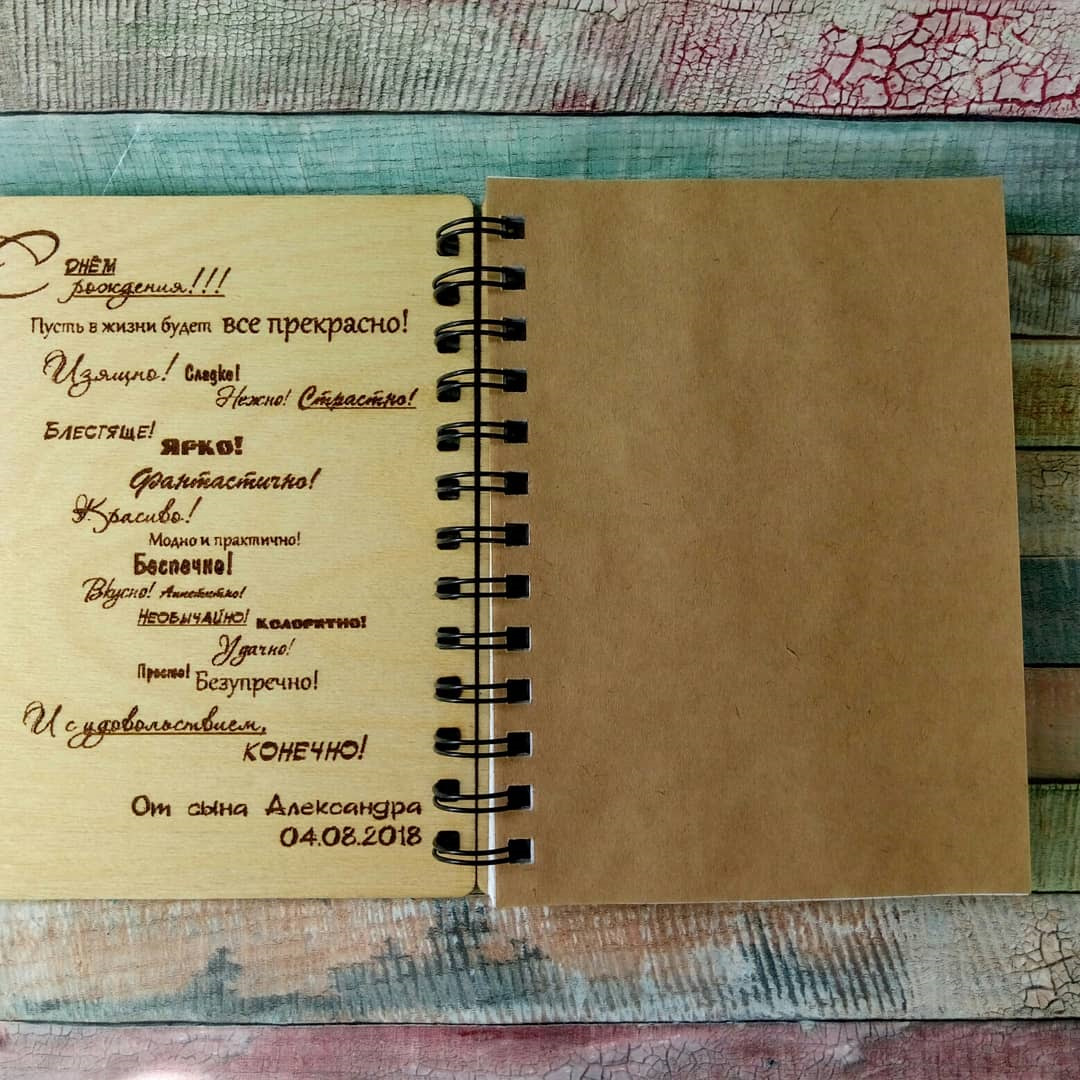 С ДНЁМ
рождения!!!
Пусть в жизни будет все прекрасно!
Изящно! Сладко!
Нежно! Страстно!
Блестяще!
Ярко!
Фантастично!
Красиво!
Модно и практично!
Беспечно!
Вкусно! Аппетитно!
Необычайно! Колоритно!
Удачно!
Просто! Безупречно!
И с удовольствием,
КОНЕЧНО!
От сына Александра
04.08.2018